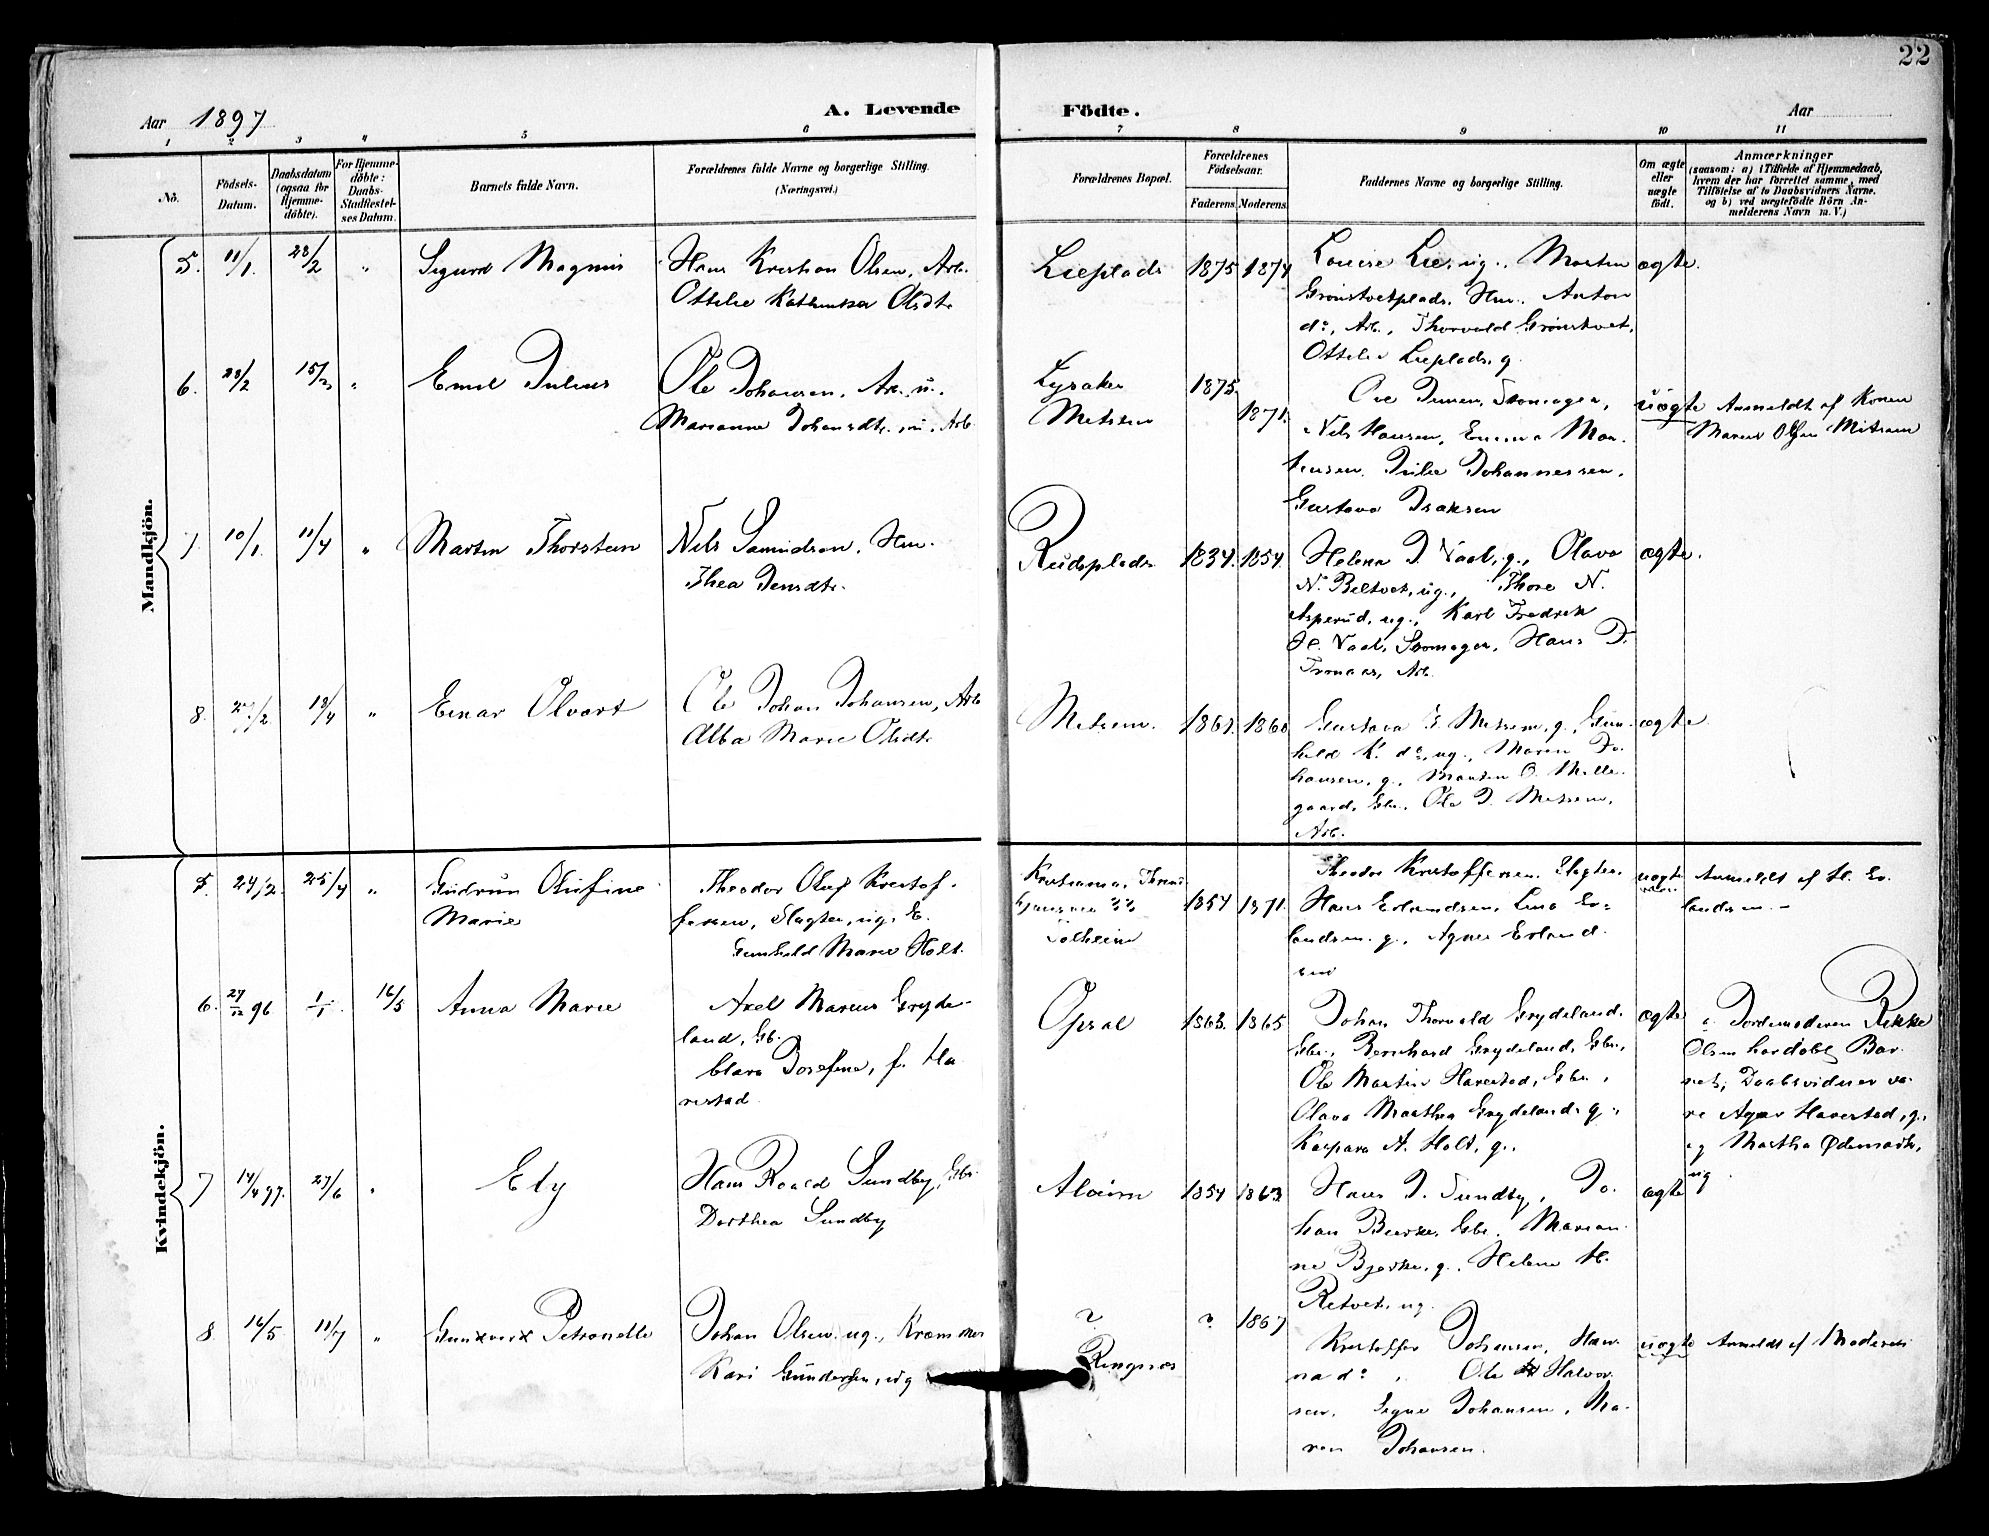 22
Aar 1897
A. Levende
Födte.
Aar
1 2 3 " 5 6 7 8 9 10 11
No.
Födsels-
Datum.
Daabsdatum
(ogsaa for
Hjemme-
döbte).
For Hjemme-
döbte:
Daabs-
Stadfæstel-
ses Datum.
Barnets fulde Navn.
Forældrenes fulde Navne og borgerlige Stilling.
(Næringsvei.)
Forældrenes Bopæl.
Forældrenes
Födselsaar.
Faderens. Moderens.
Faddernes Navne og borgerlige Stilling.
Om ægte
eller
uægte
födt.
Anmærkninger
(saasom: a) i Tilfælde af Hjemmedaab,
hvem der har forrettet samme, med
Tilföielse af to Daabsvidners Navne.
og b) ved uægtefödte Börn An-
melderens Navn m. V.)
Mandkjön.
5. 11/1. 28/2 " Sigurd Magnus
Hans Kristian Olsen, Arb.
Ottilie Kathinka Olsdtr
Lieplads 1875 1874
Louise Lie, ug., Morten
Grønstvetplads, Hm. Anton
do, Arb., Thorvald Grønstvet,
Ottilie Lieplads, g.
ægte.
6. 28/2 15/3 " Emil Julius
Ole Johansen, Arb. u.
Marianne Johansdtr, u. Arb.
Lysaker 1875.
Metsem 1871.
Ove Jensen, Skomager,
Nils Hansen, Emma
Julie Johannessen,
Gustava Isaksen
uægte Anmeldt af Konen
Maren Olsen Mitsem
7. 10/1. 11/4 " Martin Thorstein
Nils Samuelsen, Hm.
Thea Jensdtr.
Rudsplads 1834. 1854.
Helena J. Vaal, g., Olava
N. Beltvet, ug., Thore N.
Asperud, ug., Karl Fredrik
H. Vaal, Skomager, Hans D.
Tronaas, Arb.
ægte.
8. 27/2 18/4 " Einar Olvart
Ole Johan Johansen, Arb
Alba Marie Olsdtr
Metsem. 1861. 1860
Gustava J. Metsem, g., Gun-
hild K. do, ug., Maren Jo-
hansen, g., Morten O. Melle-
gaard, Gbr., Ole J. Metsem,
Arb.
ægte
Kvindekjön.
5. 24/2. 25/4 " Gudrun Olufine
Marie
Theodor Oluf Kristof-
fersen, Slagter, ug. &
Gunhild Marie Holt.
Kristiania,
Solheim
1854 1871.
Theodor Kristoffersen, Slagter,
Hans Erlandsen, Lina Er-
landsen, g., Agnes Erland-
sen
uægte Anmeldt af H. Er-
landsen. -
6. 27/12 96 1/1. 16/5 Anna Marie
Axel Marius Gryde-
land, Gb.
Clara Josefine, f. Ha-
verstad.
Opsal 1863. 1865
Johan Thorvald Grydeland,
Gbr., Bernhard Grydeland, Gbr.,
Ole Martin Haverstad, Gbr.,
Olava Marthea Grydeland, g.,
Kaspara A. Holt, g.,
ægte a. Jordemoderen Rikke
Olsen har døbt Bar-
net; Daabsvidner va-
re Agnes Haverstad, g.,
og Martha Ødemark,
ug
7 14/4 97. 27/6 " Ely
Hans Roald Sundby, Gbr.
Dorthea Sundby
Alværn 1854 1863
Hans J. Sundby, Jo-
han Bjerke, Gbr., Marian-
ne Bjerke, g., Helene H.
Retvet, ug.
ægte
8 16/5 11/7 " Petronelle
Johan Olsen, ug., Kræmmer
Kari Gundersen, ug
? ? 1867
Ringnæs
Kristoffer Johansen, Han-
na do, Ole Halvor-
sen, Signe Johansen, Ma-
ren Johansen.
uægte Anmeldt af Moderen